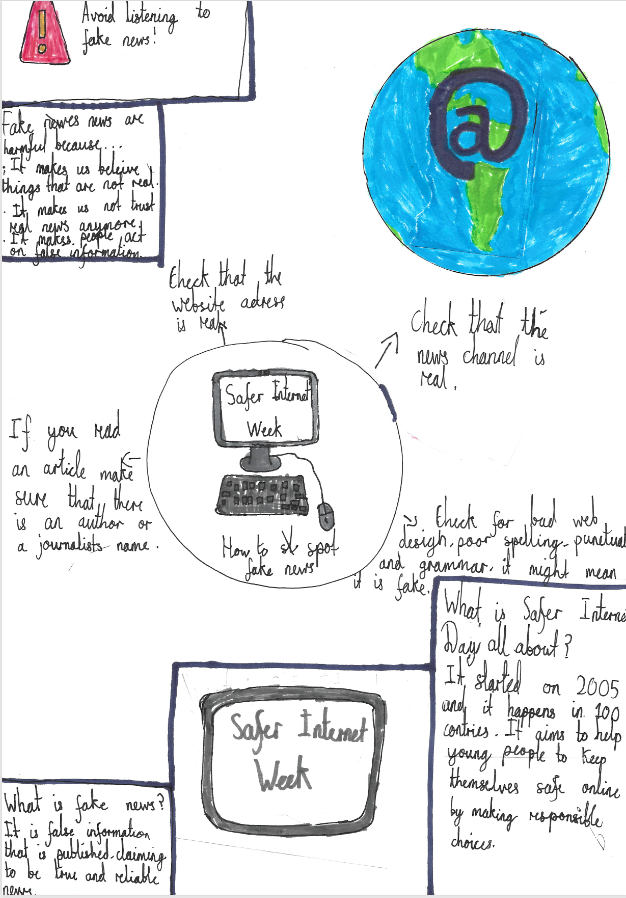 Avoid listening to
fake news!
@
Fake newes news are
harmful because...
. It makes us beleive
things that are not real.
. It makes us not trust
real news anymore.
. It makes people act
on false information.
Check that the
website adress
is real.
Check that the
news channel is
real.
Safer Internet
Week
If you read
an article make
sure that there
is an author or
a journalists name.
How to spot
fake news
Check for bad web
design, poor spelling, punctuat
and grammar. it might mean
it is fake.
What is Safer Interne
Day all about?
It started on 2005
and it happens in 100
contries. It aims to help
young people to keep
themselves safe online
by making responsible
choices.
Safer Internet
Week
What is fake news?
It is false information
that is published claiming
to be true and reliable
news.